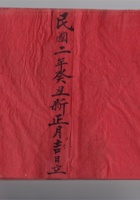 民國二年癸丑新正月吉日立